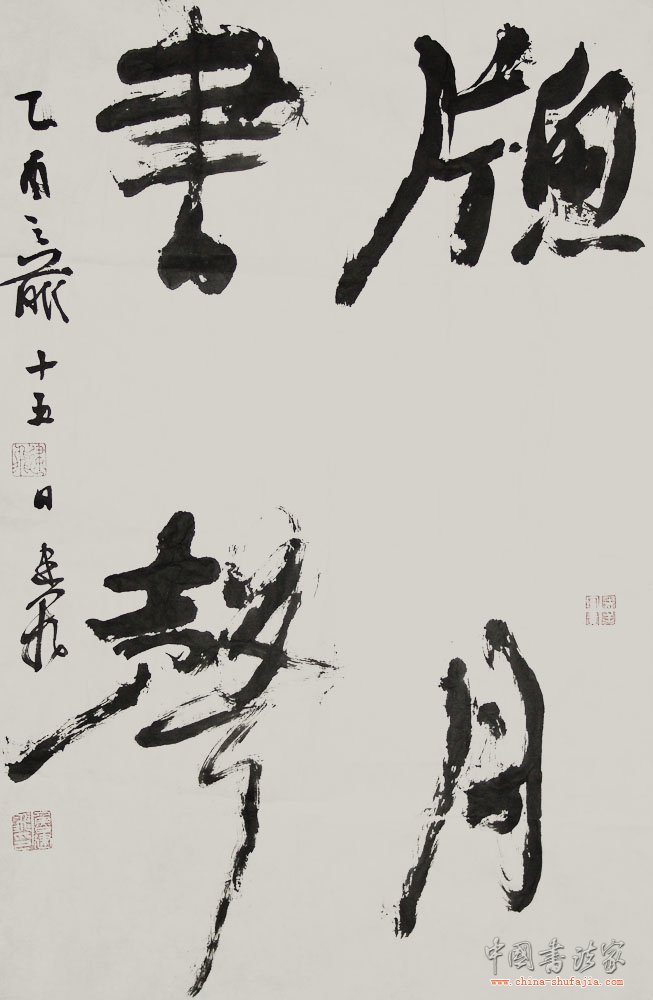 牕月
書聲
乙酉之十五日
中國書法家
www.china-shufajia.com